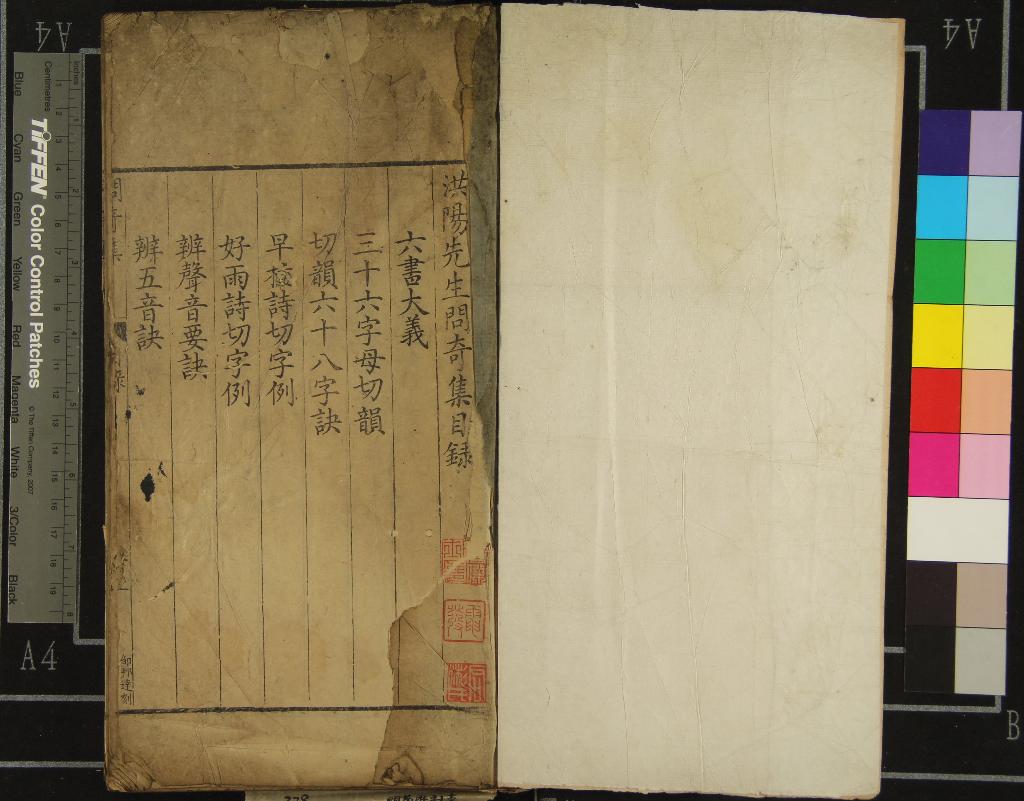 洪陽先生問奇集目録
六書大義
三十六字母切韻
切韻六十八字訣
早梅詩切字例
好雨詩切字例
辨聲音要訣
辨五音訣
鄒邦達刻
TIFFEN Color Control Patches
© The Tiffen Company, 2007
Centimetres
Inches
Blue
Cyan
Green
Yellow
Red
Magenta
White
3/Color
Black
A4
A4
A4
B